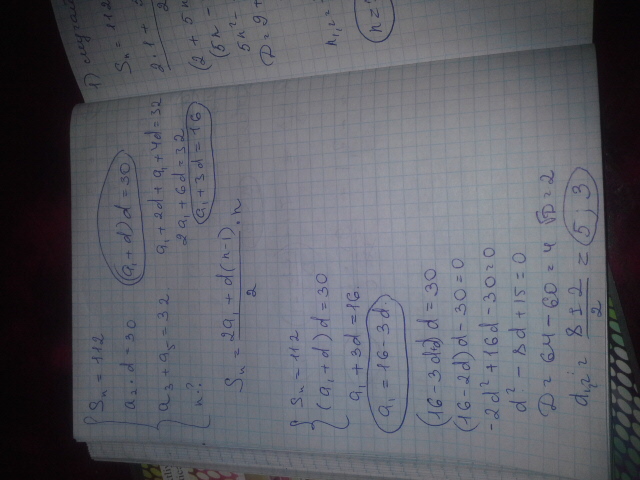 { Sₙ = 112
a₂ · d = 30
(a₁ + d) d = 30
a₃ + a₅ = 32.
a₁ + 2d + a₁ + 4d = 32
2a₁ + 6d = 32
a₁ + 3d = 16
n?
Sₙ = (2a₁ + d(n-1))/2 · n
{ Sₙ = 112
(a₁ + d) d = 30
a₁ + 3d = 16.
a₁ = 16 - 3d.
(16 - 3d+d) d = 30
(16 - 2d) d - 30 = 0
-2d² + 16d - 30 = 0
d² - 8d + 15 = 0
D = 64 - 60 = 4 √D = 2
d₁,₂ = (8 ± 2)/2 = 5; 3
1)
Sₙ = 112
2·1 +
(2 + 5n
(5n -
5n² -
D = 9 +
n₁,₂ =
n =